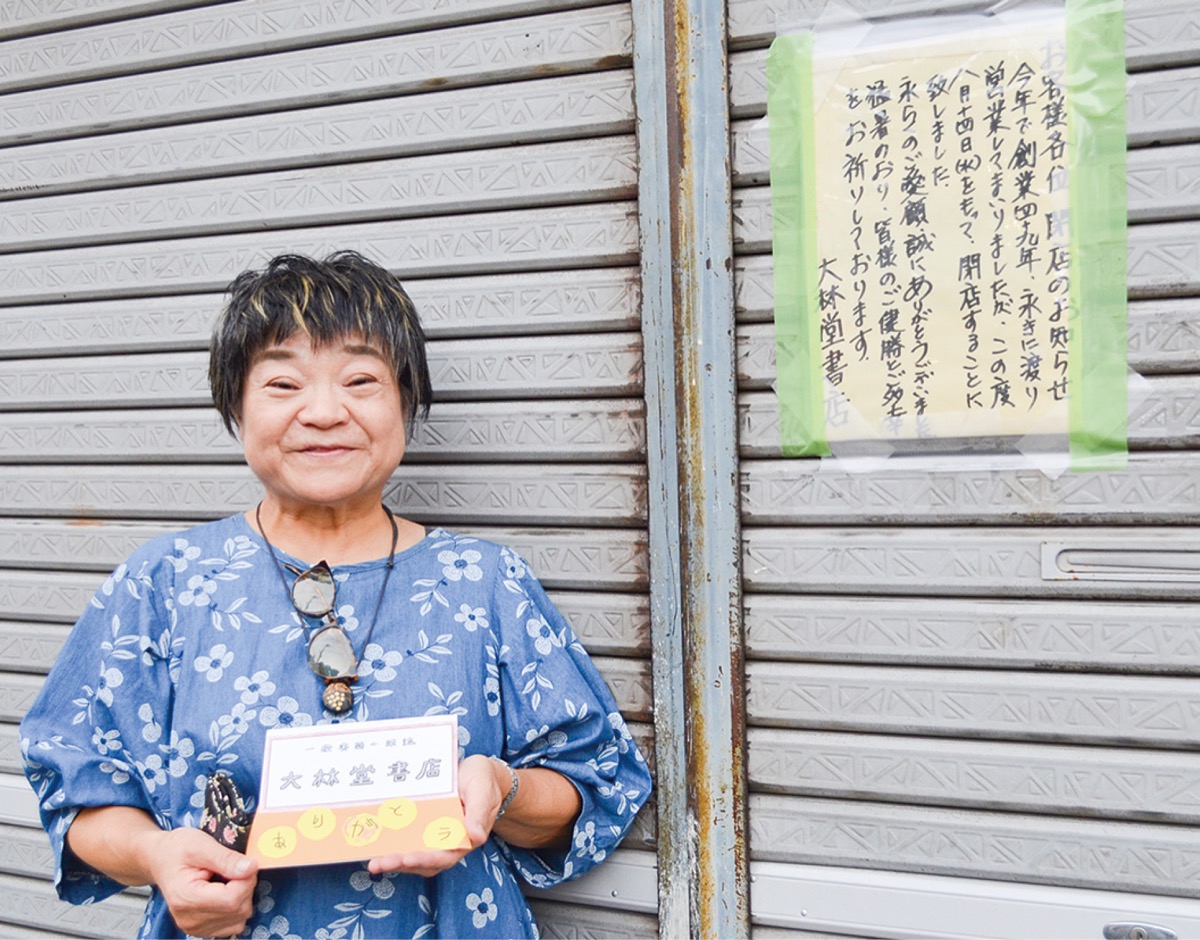 お客様各位 閉店のお知らせ
今年で創業四十九年、永きに渡り
営業してまいりましたが、この度
八月十四日(水)をもって、閉店することに
致しました。
永らくのご愛顧、誠にありがとうございました
猛暑のおり、皆様のご健勝とご多幸
をお祈りしております。
大林堂書店
一般書籍・雑誌
大林堂書店
ありがとう